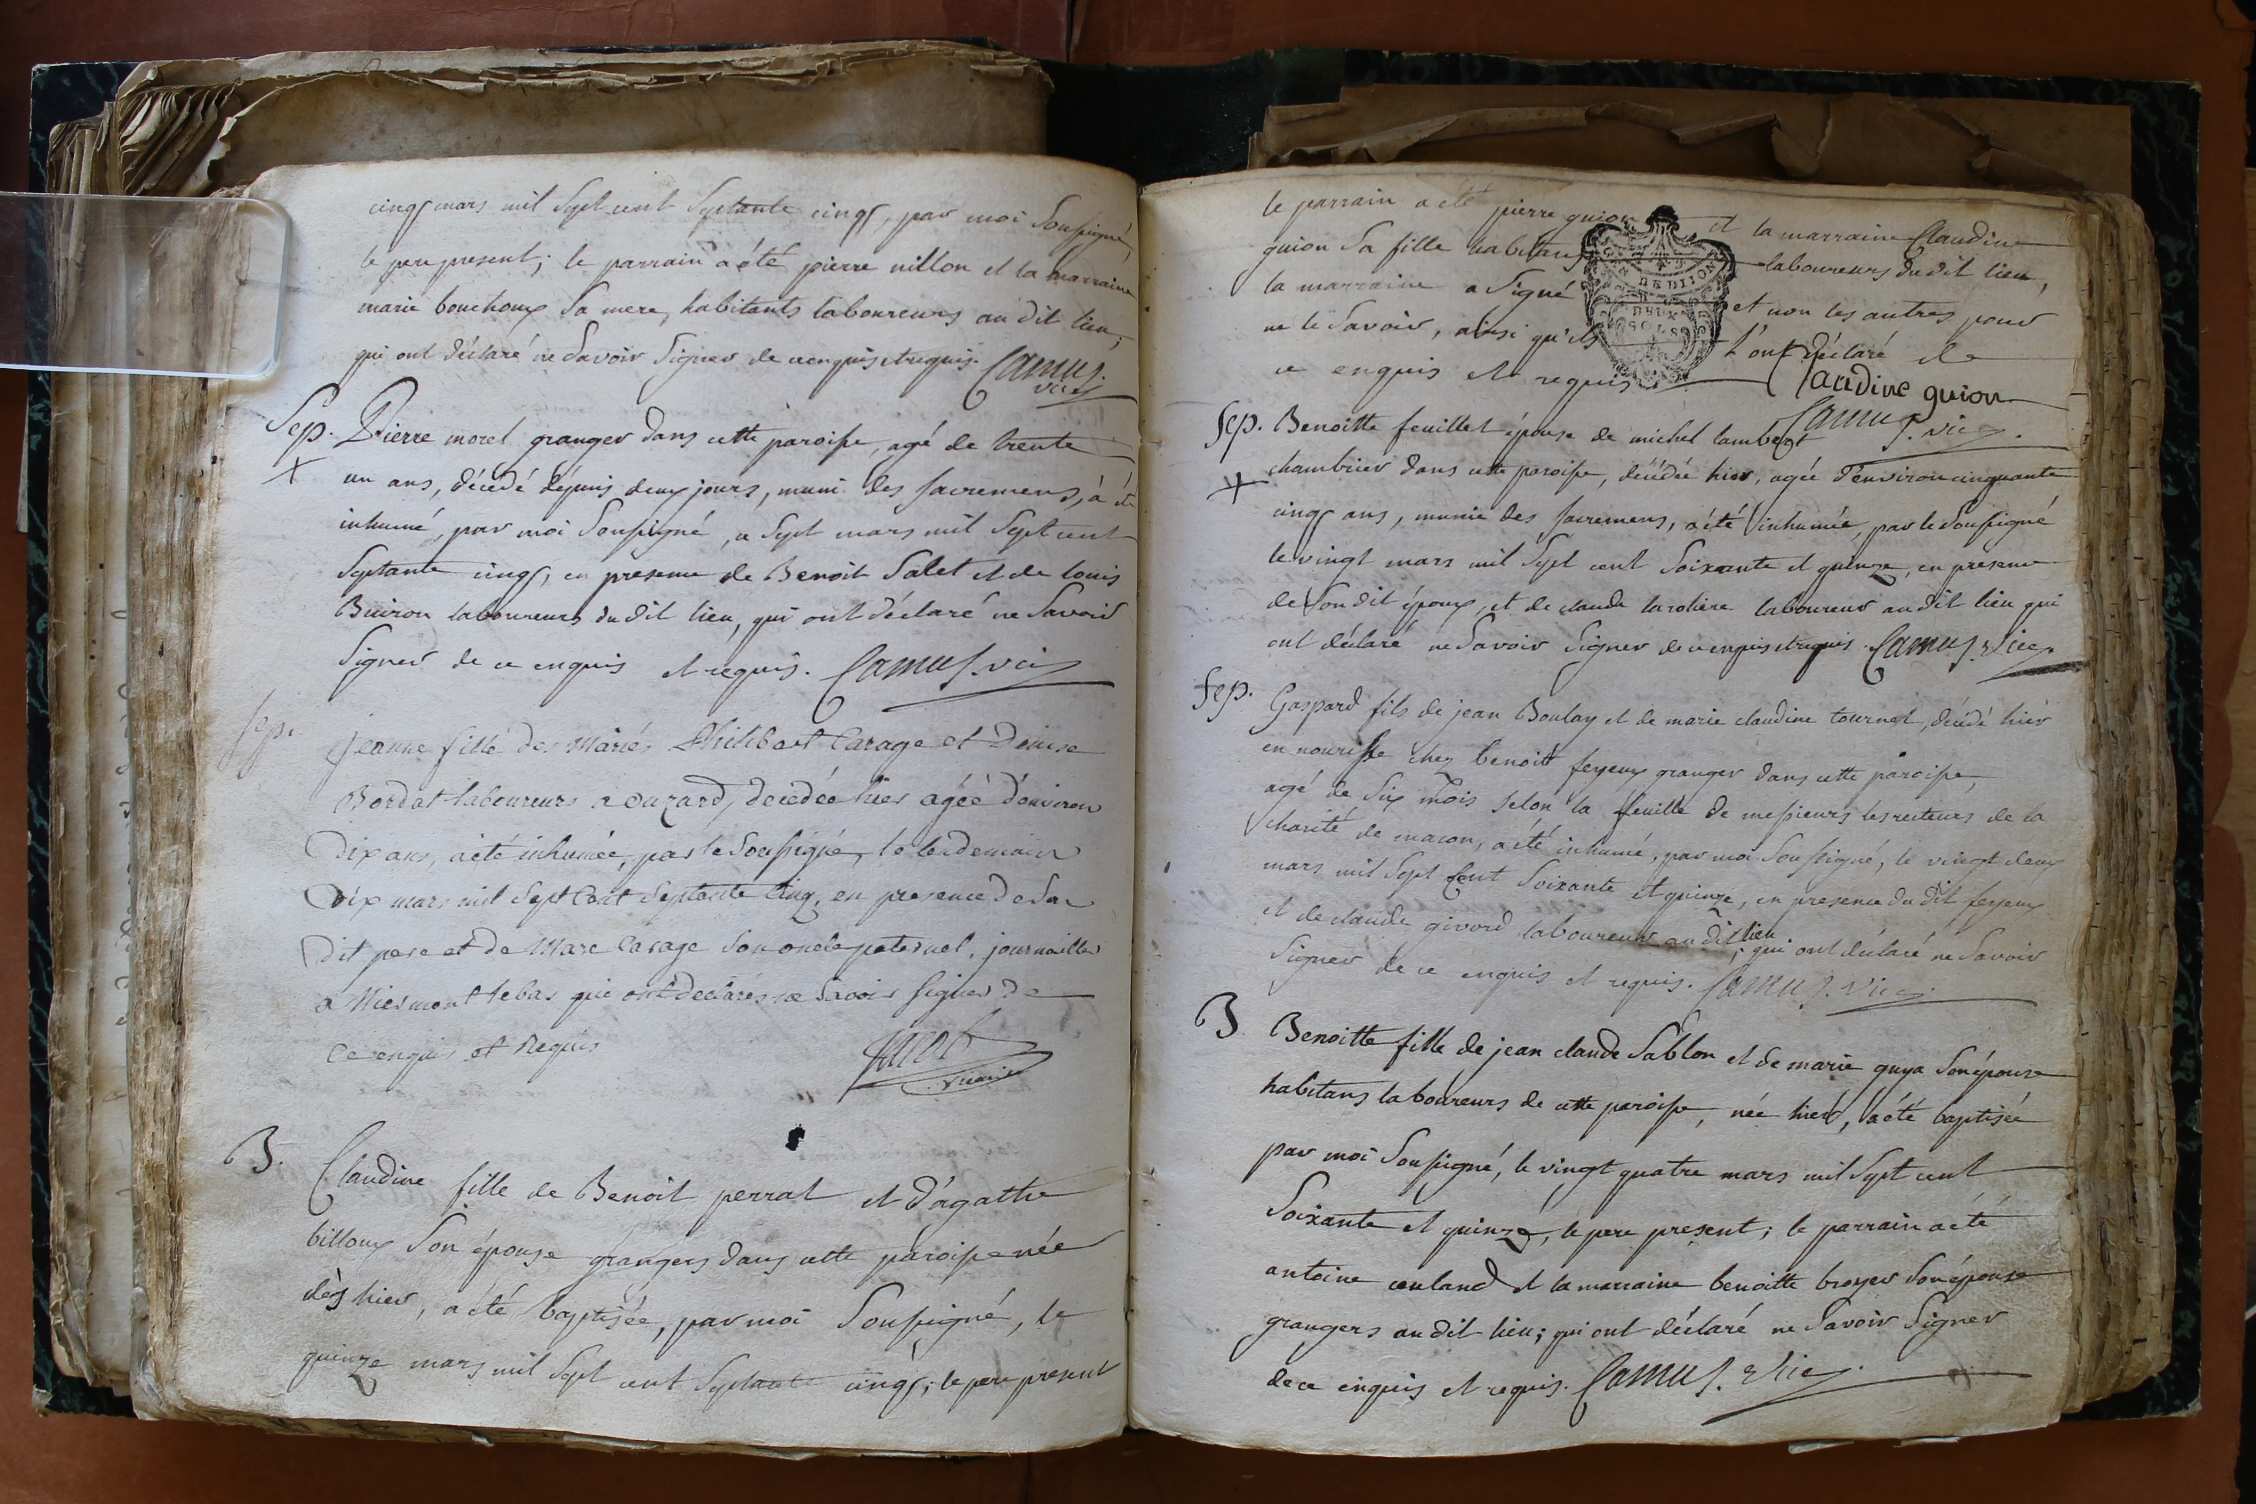 cinq mars mil sept cent septante cinq, par moi soussigné,
le pere present; le parrain a été pierre nillon et la marraine
marie bouchoux sa mere, habitants laboureurs au dit lieu,
qui ont déclaré ne savoir signer de ce enquis et requis. Camus.
vic
Sep. Pierre morel granger dans cette paroisse, agé de trente
un ans, décédé dépuis deux jours, muni des sacremens, à été
inhumé, par moi soussigné, ce sept mars mil sept cent
septante cinq, en presence de Benoit Salet et de louis
Buiron laboureurs du dit lieu, qui ont déclaré ne savoir
signer de ce enquis et requis. Camus. vic
sep. jeanne fille des Mariés Philibert Carage et Denise
Bordat laboureurs a ouzard, decedée hier agéé d'environ
Dix ans, a été inhumée, par le soussigné, le lendemain
Dix mars mil sept Cent septante Cinq, en presence de son
dit pere et de Marc Carage son oncle paternel, journallier
a le bas qui ont declarés ne savoir signer de
ce enquis et Requis
vicaire
B. Claudine fille de Benoit perrat et d'agathe
billoux son épouse grangers dans cette paroisse née
dès hier, a été baptisée, par moi soussigné, le
quinze mars mil sept cent septante cinq; le pere present
le parrain a été pierre guion et la marraine Claudine
guion sa fille habitans laboureurs du dit lieu,
la marraine a signé et non les autres pour
ne le savoir, ainsi qu'ils l'ont déclaré de
ce enquis et requis Claudine guion
DEUX
SOLS
Camus. vic.
Sep. Benoitte feuillet épouse de michel lambert
chambrier dans cette paroisse, décédée hier, agée d'environ cinquante
cinq ans, munie des sacremens, a été inhumée, par le soussigné
le vingt mars mil sept cent soixante et quinze, en presence
de son dit époux, et de claude larolière laboureur au dit lieu qui
ont déclaré ne savoir signer de ce enquis et requis. Camus. Vic.
Sep. Gaspard fils de jean Boulay et de marie claudine tournel, décédé hier
en nourisse chez benoit feyeux granger dans cette paroisse,
agé de six mois selon la feuille de messieurs les recteurs de la
charité de macon, a été inhumé, par moi soussigné, le vingt deux
mars mil sept cent soixante et quinze, en presence du dit feyeux
et de claude givord laboureur au dit lieu; qui ont déclaré ne savoir
signer de ce enquis et requis. Camus. Vic.
B Benoitte fille de jean claude Sablon et de marie guya son épouse
habitans laboureurs de cette paroisse, née hier, a été baptisée
par moi soussigné, le vingt quatre mars mil sept cent
soixante et quinze, le pere present; le parrain a été
antoine couland et la marraine benoitte broyer son épouse
grangers au dit lieu; qui ont déclaré ne savoir signer
de ce enquis et requis. Camus. Vic.